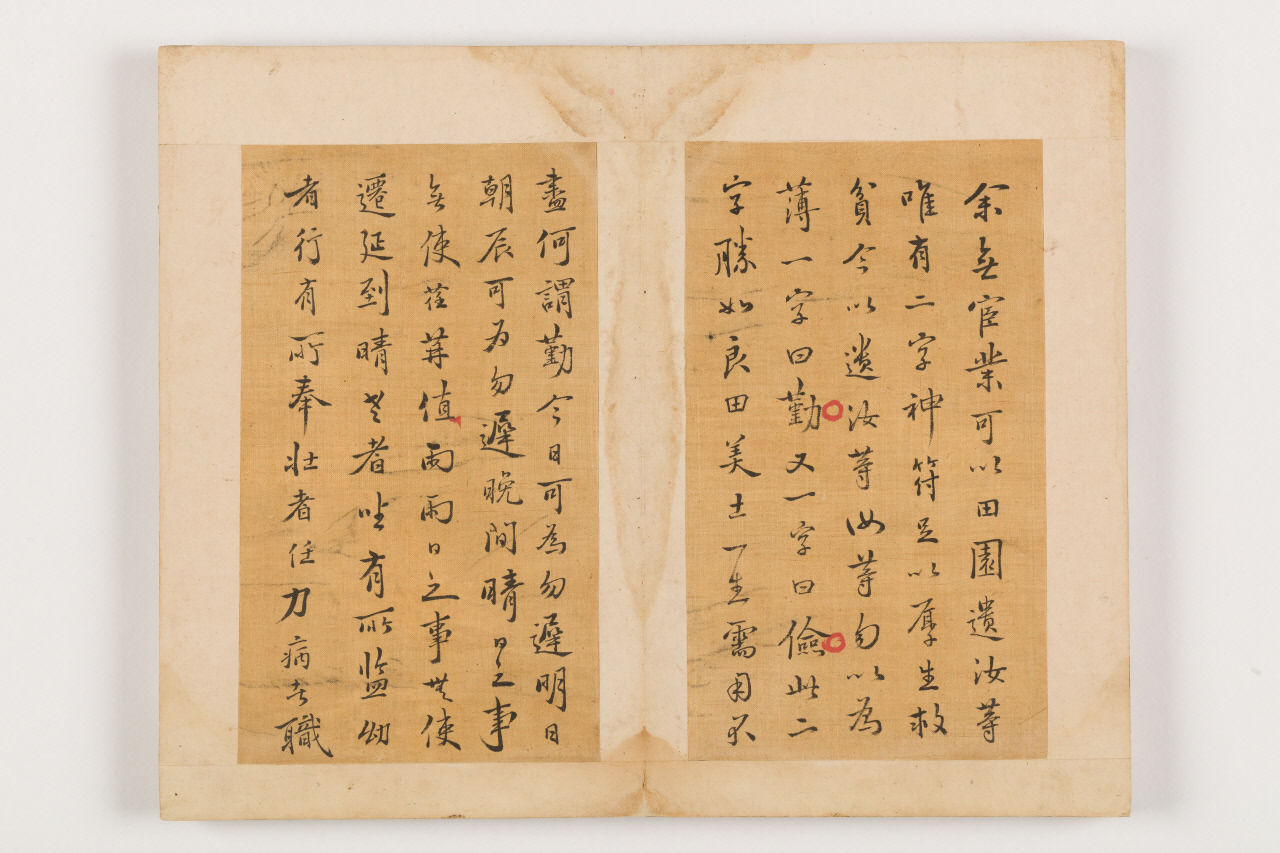 余無宦業可以田園遺汝等
唯有二字神符足以厚生救
貧今以遺汝等汝等勿以為
薄一字曰勤又一字曰儉此二
字勝如良田美土一生需用不
盡何謂勤今日可為勿遲明日
朝辰可為勿遲晚間晴日之事
無使荏苒值雨雨日之事無使
遷延到晴老者坐有所監幼
者行有所奉壯者任力病者職